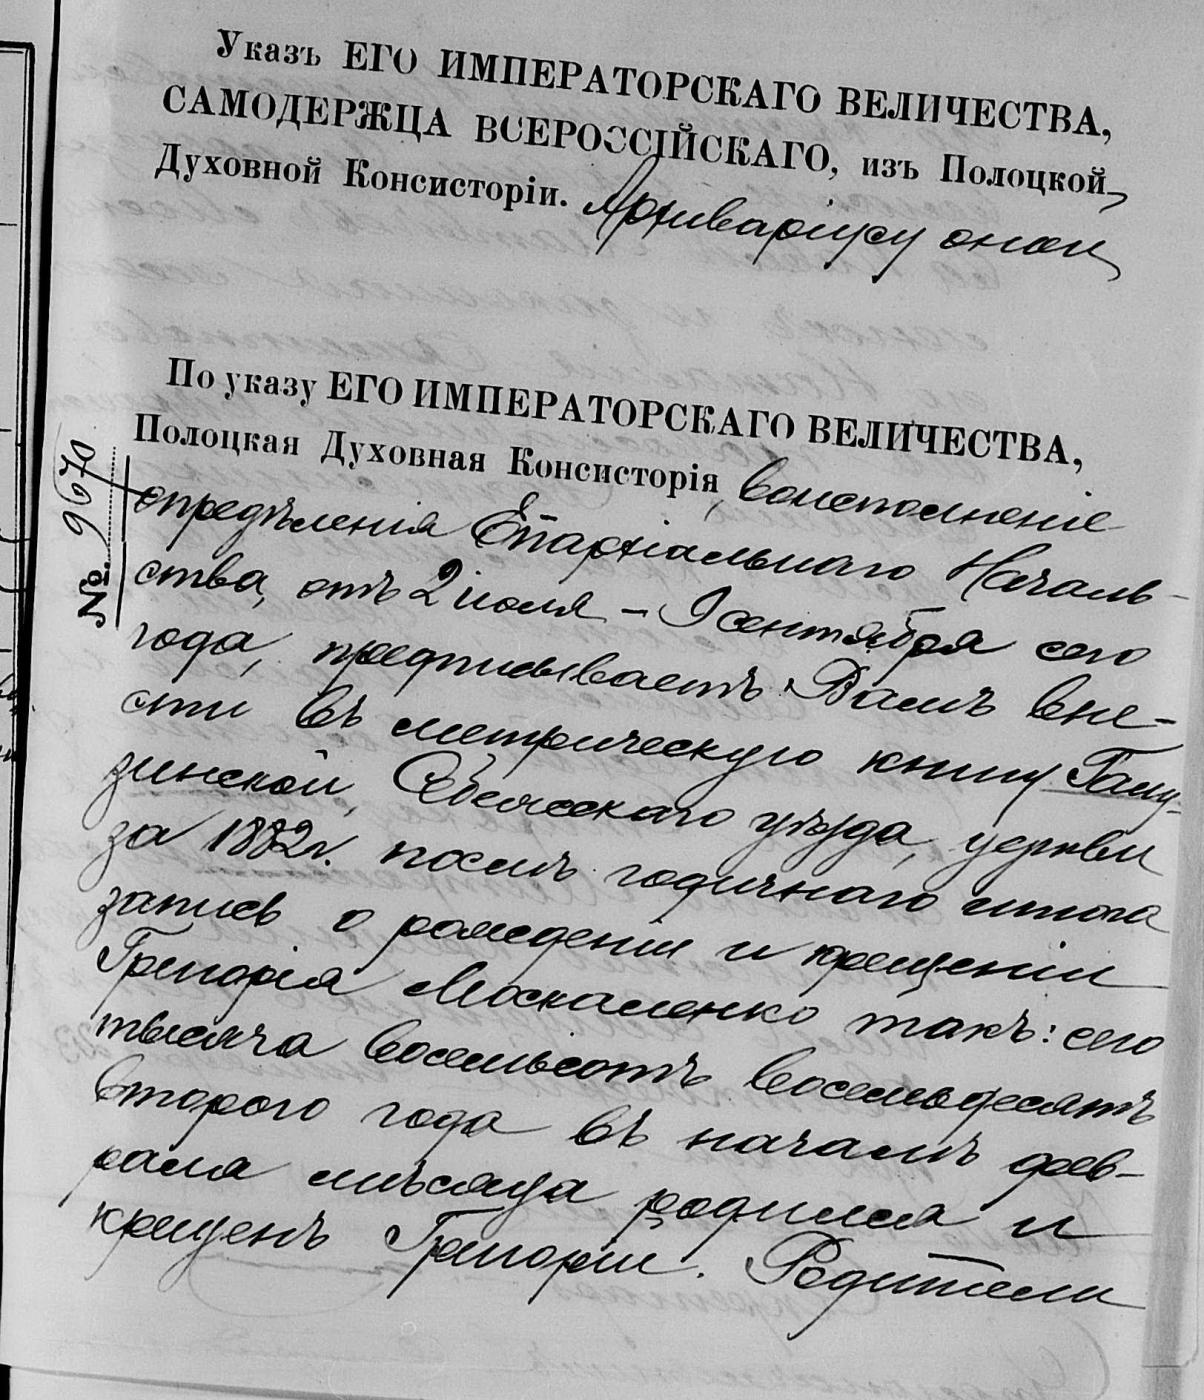 Указъ ЕГО ИМПЕРАТОРСКАГО ВЕЛИЧЕСТВА,
САМОДЕРЖЦА ВСЕРОССІЙСКАГО, изъ Полоцкой
Духовной Консисторіи. Архиваріусу оной
По указу ЕГО ИМПЕРАТОРСКАГО ВЕЛИЧЕСТВА,
Полоцкая Духовная Консисторія, во исполненіе
№. 9670
опредѣленія Епархіальнаго Началь-
ства, отъ 2 іюля – 9 сентября сего
года, предписываетъ Вамъ вне-
сти въ метрическую книгу
Себежскаго уѣзда, церкви
за 1882 г. послѣ годичнаго итога
запись о рожденіи и крещеніи
Григорія Москаленко такъ: сего
тысяча восемьсотъ восемьдесятъ
второго года въ началѣ фев-
раля мѣсяца родился и
крещенъ Григорій. Родители